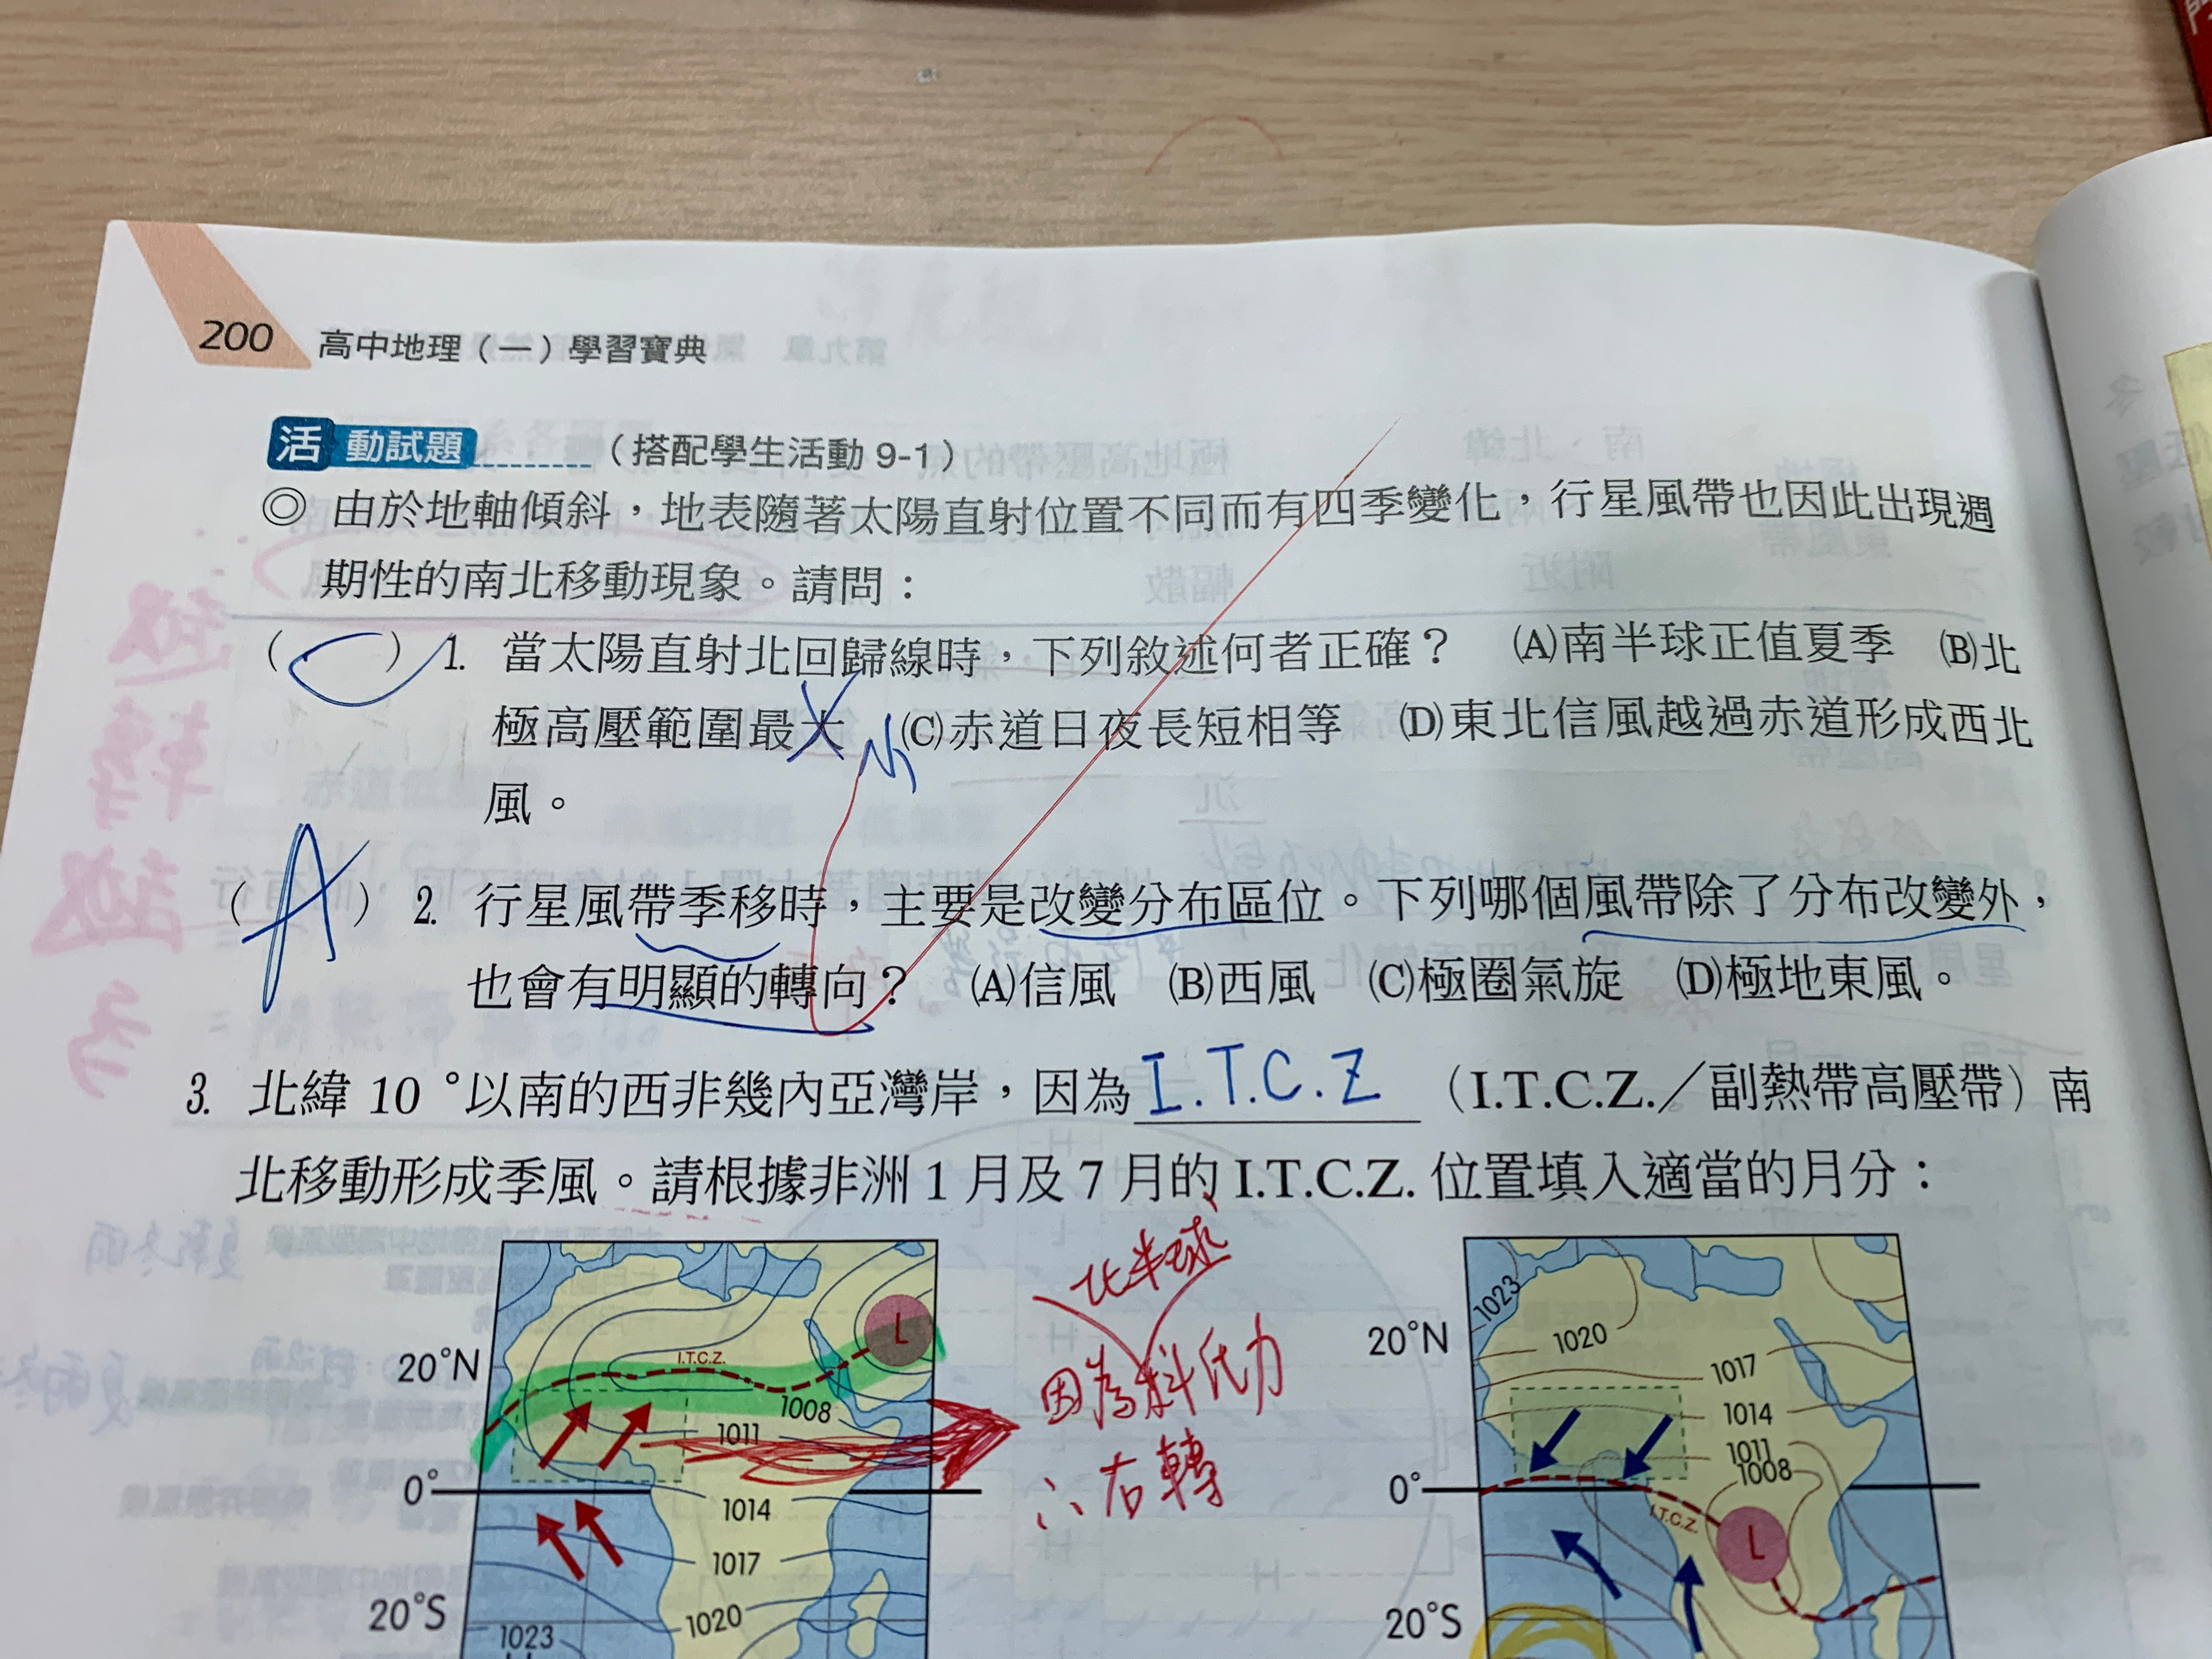 200 高中地理（一）學習寶典
活動試題（搭配學生活動 9-1）
◎ 由於地軸傾斜，地表隨著太陽直射位置不同而有四季變化，行星風帶也因此出現週
期性的南北移動現象。請問：
（C）1. 當太陽直射北回歸線時，下列敘述何者正確？ (A)南半球正值夏季 (B)北
極高壓範圍最大 小 (C)赤道日夜長短相等 (D)東北信風越過赤道形成西北
風。
（A）2. 行星風帶季移時，主要是改變分布區位。下列哪個風帶除了分布改變外，
也會有明顯的轉向？ (A)信風 (B)西風 (C)極圈氣旋 (D)極地東風。
3. 北緯 10 °以南的西非幾內亞灣岸，因為 I.T.C.Z （I.T.C.Z.／副熱帶高壓帶）南
北移動形成季風。請根據非洲 1 月及 7 月的 I.T.C.Z. 位置填入適當的月分：
L
20°N
I.T.C.Z.
1008
1011
0°
1014
1017
20°S
1020
1023
北半球
因為科氏力
∴右轉
1023
20°N
1020
1017
1014
1011
1008
0°
I.T.C.Z.
L
20°S